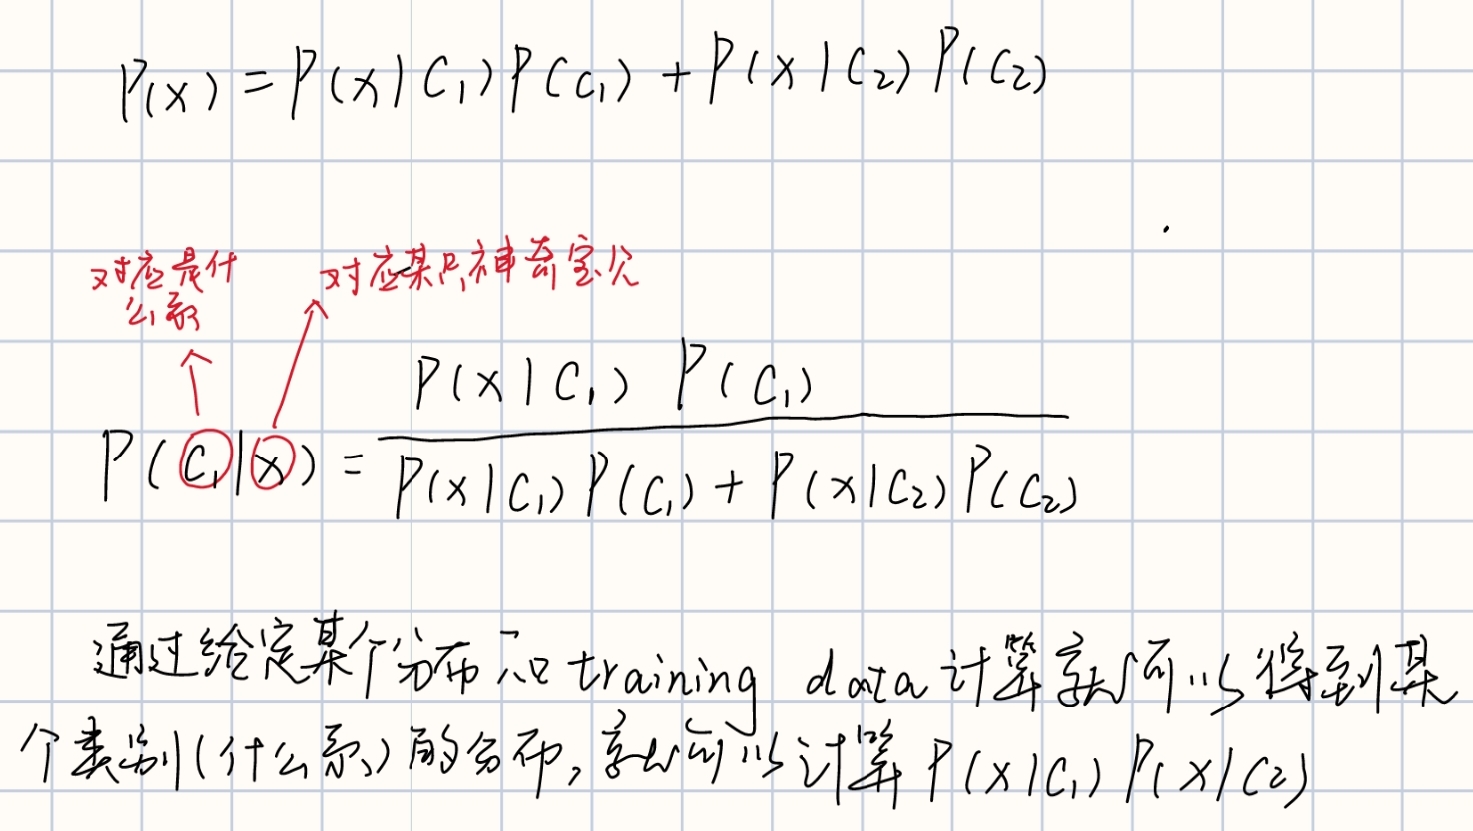 P(x) = P(x|C₁)P(C₁) + P(x|C₂)P(C₂)
对应是什
么系
对应某只神奇宝贝
P(x|C₁) P(C₁)
P(C₁|x) =
P(x|C₁)P(C₁) + P(x|C₂)P(C₂)
通过给定某个分布和training data计算就可以得到某
个类别(什么系)的分布,就可以计算P(x|C₁)P(x|C₂)